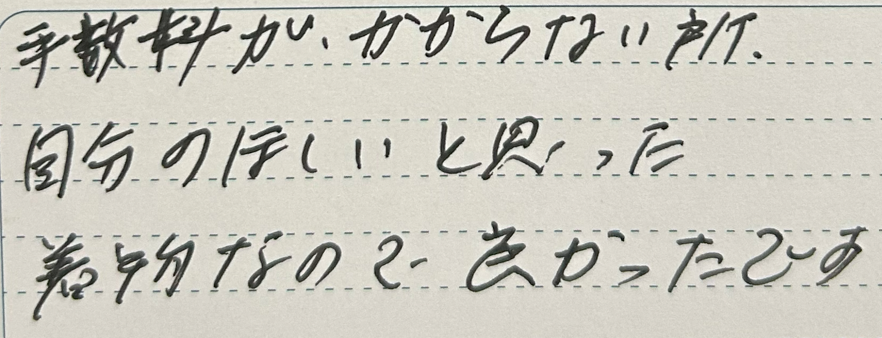 手数料が、かからない所.
自分のほしいと思った
着物なので良かったです